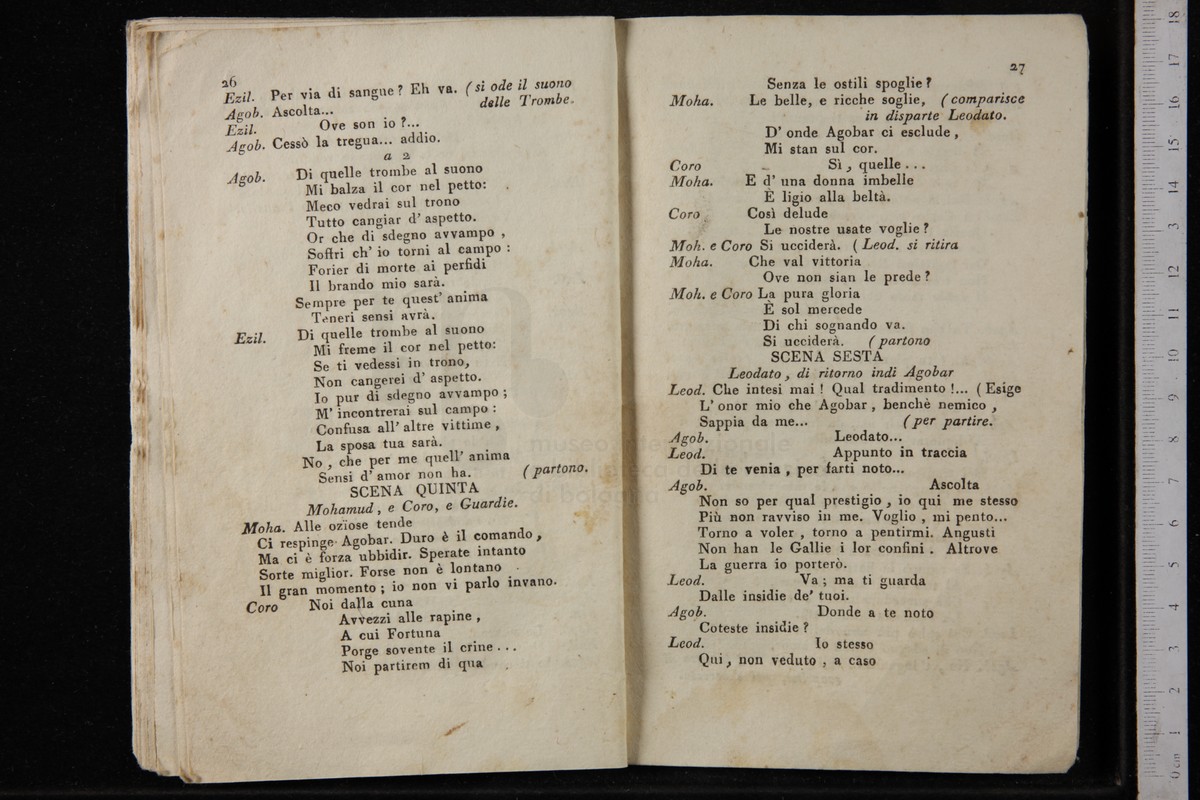 26
Ezil. Per via di sangue? Eh va. (si ode il suono
delle Trombe.
Agob. Ascolta...
Ezil. Ove son io?...
Agob. Cessò la tregua... addio.
a 2
Agob. Di quelle trombe al suono
Mi balza il cor nel petto:
Meco vedrai sul trono
Tutto cangiar d' aspetto.
Or che di sdegno avvampo,
Soffri ch' io torni al campo:
Forier di morte ai perfidi
Il brando mio sarà.
Sempre per te quest' anima
Teneri sensi avrà.
Ezil. Di quelle trombe al suono
Mi freme il cor nel petto:
Se ti vedessi in trono,
Non cangerei d' aspetto.
Io pur di sdegno avvampo;
M' incontrerai sul campo:
Confusa all' altre vittime,
La sposa tua sarà.
No, che per me quell' anima
Sensi d' amor non ha. (partono.
SCENA QUINTA
Mohamud, e Coro, e Guardie.
Moha. Alle ozïose tende
Ci respinge Agobar. Duro è il comando,
Ma ci è forza ubbidir. Sperate intanto
Sorte miglior. Forse non è lontano
Il gran momento; io non vi parlo invano.
Coro Noi dalla cuna
Avvezzi alle rapine,
A cui Fortuna
Porge sovente il crine...
Noi partirem di qua
27
Senza le ostili spoglie?
Moha. Le belle, e ricche soglie, (comparisce
in disparte Leodato.
D' onde Agobar ci esclude,
Mi stan sul cor.
Coro Sì, quelle...
Moha. E d' una donna imbelle
È ligio alla beltà.
Coro Così delude
Le nostre usate voglie?
Moh. e Coro Si ucciderà. (Leod. si ritira
Moha. Che val vittoria
Ove non sian le prede?
Moh. e Coro La pura gloria
È sol mercede
Di chi sognando va.
Si ucciderà. (partono
SCENA SESTA
Leodato, di ritorno indi Agobar
Leod. Che intesi mai! Qual tradimento!... (Esige
L' onor mio che Agobar, benchè nemico,
Sappia da me... (per partire.
Agob. Leodato...
Leod. Appunto in traccia
Di te venia, per farti noto...
Agob. Ascolta
Non so per qual prestigio, io qui me stesso
Più non ravviso in me. Voglio, mi pento...
Torno a voler, torno a pentirmi. Angusti
Non han le Gallie i lor confini. Altrove
La guerra io porterò.
Leod. Va; ma ti guarda
Dalle insidie de' tuoi.
Agob. Donde a te noto
Coteste insidie?
Leod. Io stesso
Qui, non veduto, a caso